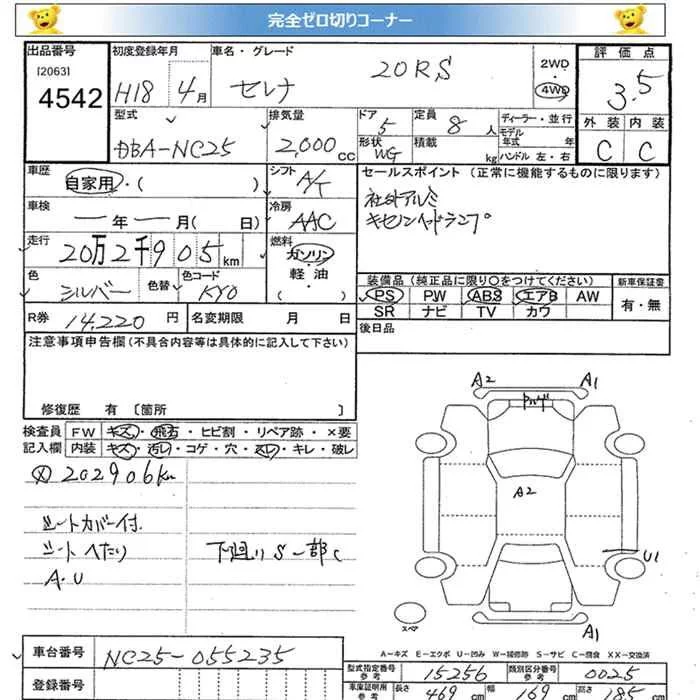 完全ゼロ切りコーナー
出品番号 初度登録年月 車名・グレード 評価点
[2063] 4542 H18 4月 セレナ 20RS 2WD・4WD 3.5
型式 排気量 ドア 定員 ディーラー・並行 外装 内装
DBA-NC25 2,000cc 5 8人 モデル年式 年
形状 WG 積載 kg ハンドル 左・右 C C
車歴 シフト セールスポイント (正常に機能するものに限ります)
自家用・( ) A/T 社外アルミ
車検 冷房 キセノンヘッドランプ
ー年ー月( 日) AAC
走行 燃料
20万2千905km ガソリン・軽油・( )
色 色替 色コード 装備品(純正品に限り○をつけてください) 新車保証書
シルバー KY0 PS PW ABS エアB AW 有・無
SR ナビ TV カワ
R券 14,220円 名変期限 月 日 後日品
注意事項申告欄(不具合内容等は具体的に記入して下さい)
修復歴 有 〔箇所 〕
検査員 FW キズ・飛石・ヒビ割・リペア跡・×要
記入欄 内装 キズ・汚レ・コゲ・穴・スレ・キレ・破レ
202906km
シートカバー付
シートへたり 下廻りS一部C
A・U
A2 A1
A2
U1
A1
スペア
A-キズ E-エクボ U-凹み W-補修跡 S-サビ C-腐食 XX-交換済
車台番号 NC25-055235
型式指定番号 参考 15256 類別区分番号 参考 0025
登録番号 車庫証明用 参考 長さ 469cm 幅 169cm 高さ 185cm